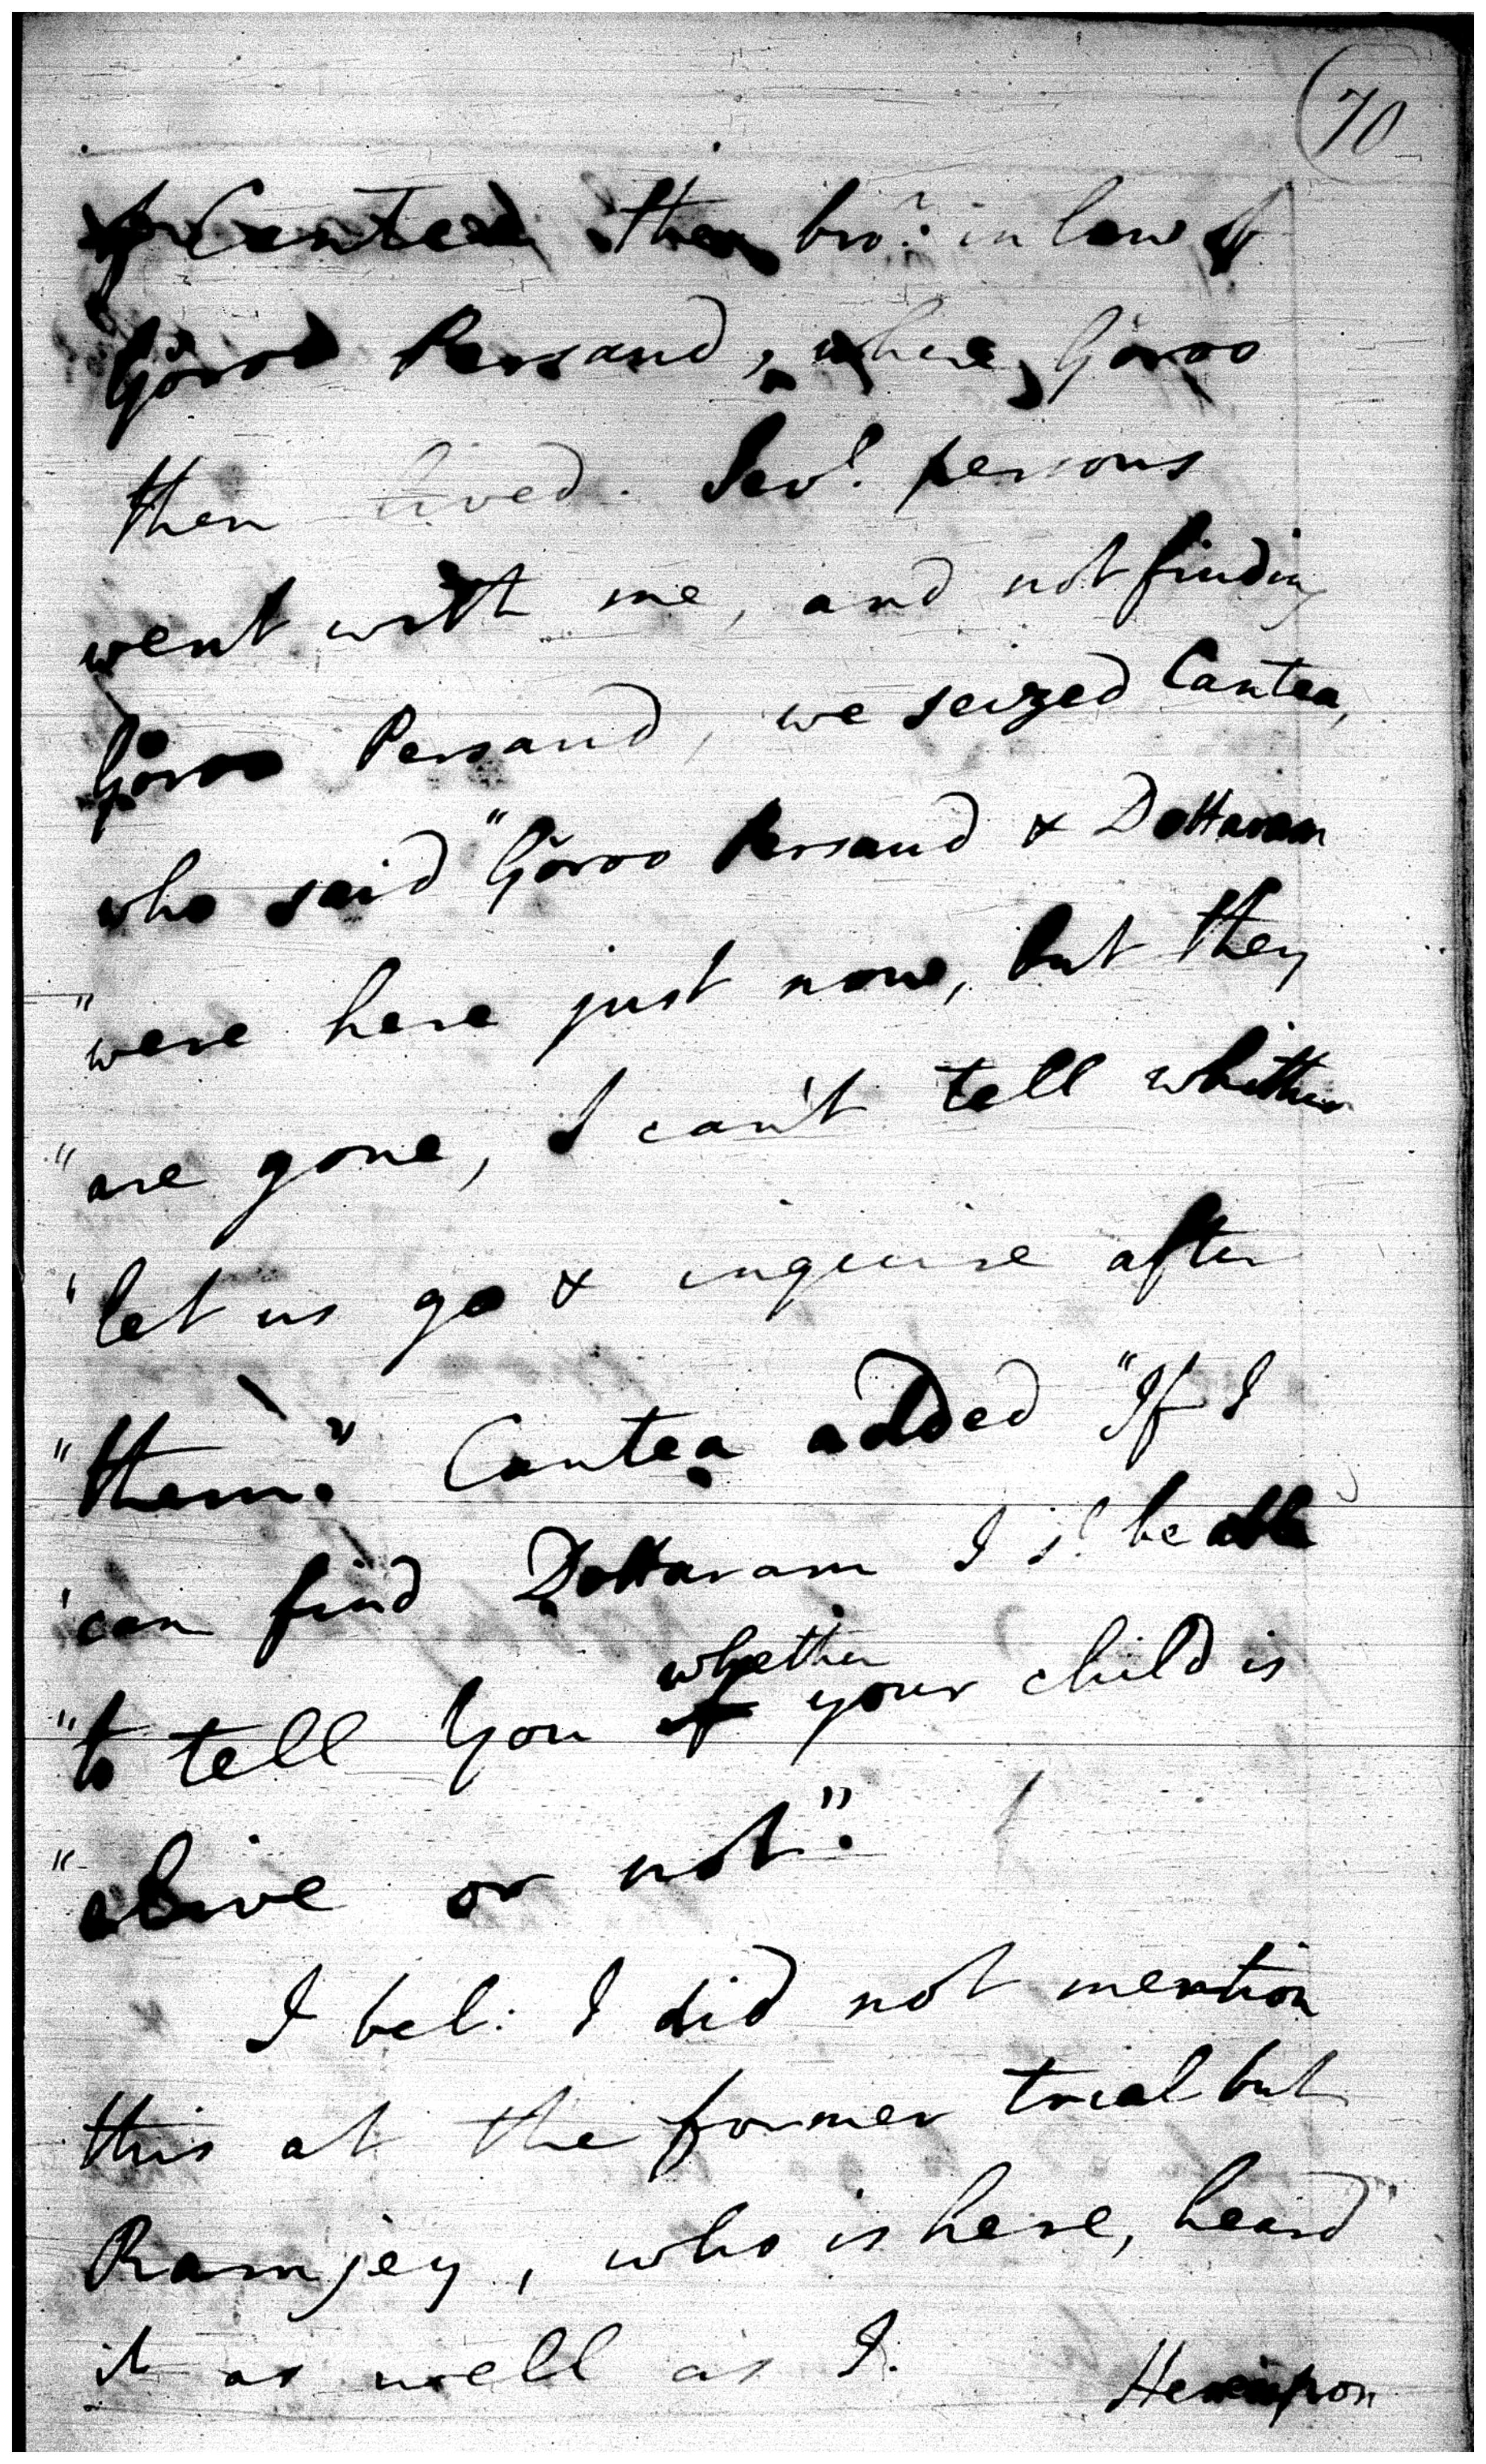 70
of Cantea, the bror. in law of
Goroo Persaud, where Goroo
then lived. Sevl. persons
went with me, and not finding
Goroo Persaud, we seized Cantea,
who said "Goroo Persaud & Dottaram
"were here just now, but they
"are gone, I can't tell whither
"let us go & inquire after
"them." Cantea added "If I
"can find Dottaram I sd. be able
"to tell you whether your child is
"alive or not."
I bel: I did not mention
this at the former trial but
Ramjey, who is here, heard
it as well as I.
Hereupon